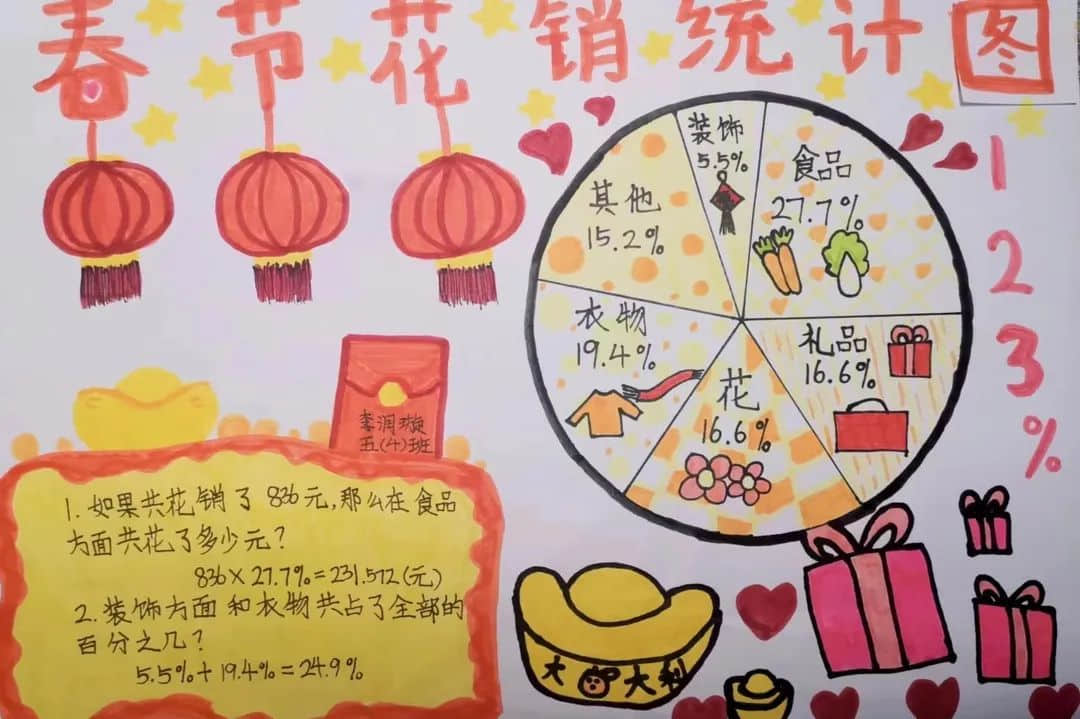 春节花销统计图
装饰
5.5%
食品
27.7%
其他
15.2%
衣物
19.4%
礼品
16.6%
花
16.6%
1
2
3
%
李润璇
五(4)班
1.如果共花销了836元,那么在食品
方面共花了多少元?
836×27.7%=231.572(元)
2.装饰方面和衣物共占了全部的
百分之几?
5.5%+19.4%=24.9%
大吉大利